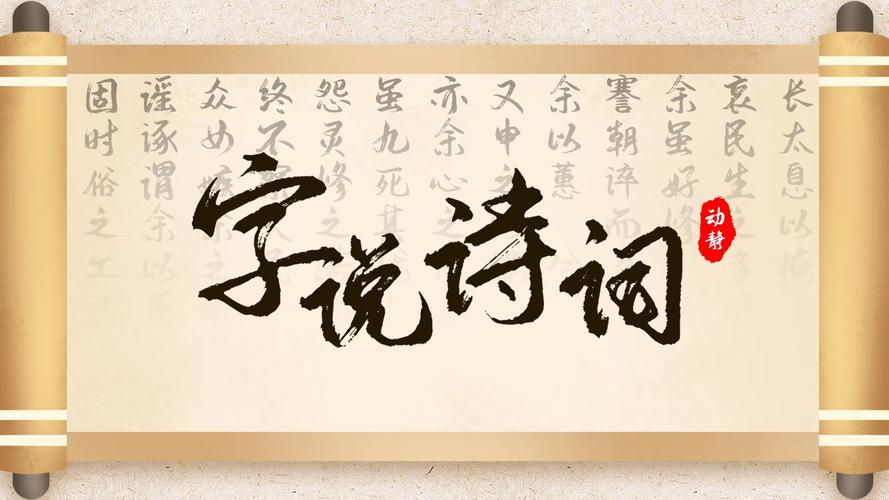 字说诗词
动静
长太息以掩
哀民生之多
余虽好修
謇朝谇而
余以蕙
又申之
亦余心之
虽九死其
怨灵修之
终不
众女嫉余之
谣诼谓余以善
固时俗之工